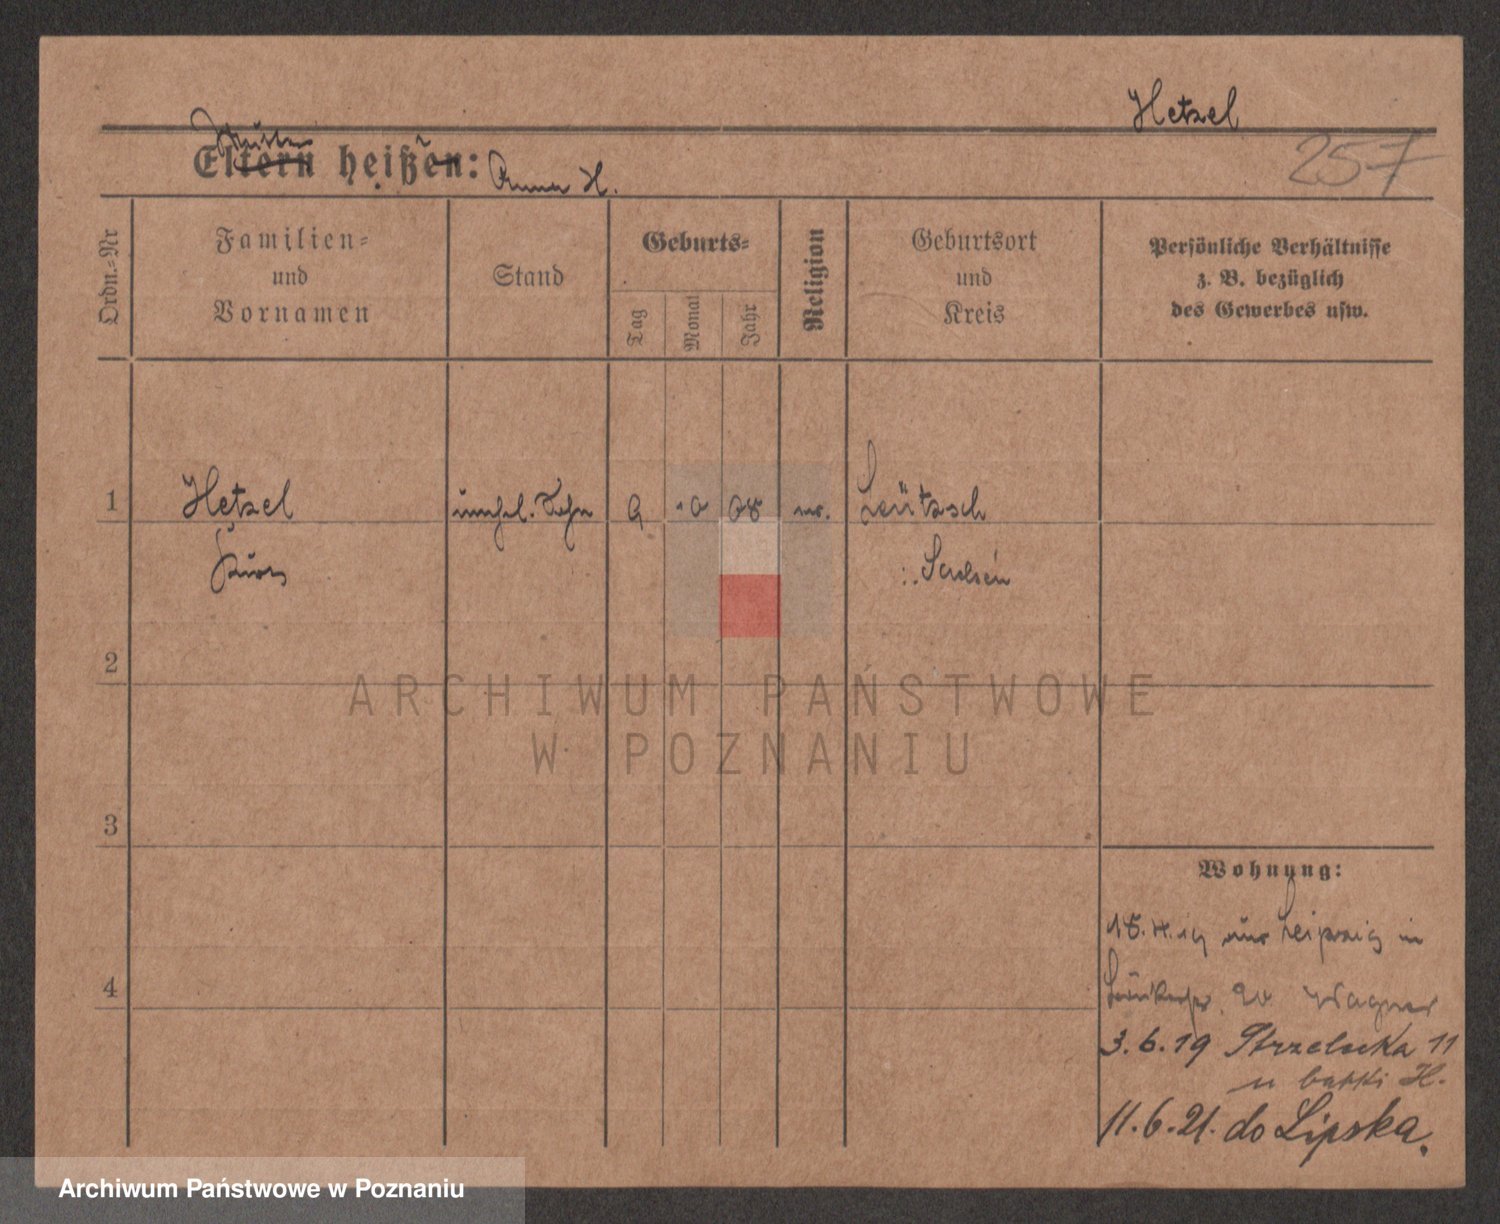 Hetzel
257
Mutter
Eltern heißen: Anna H.
Ordn.-Nr
Familien-
und
Vornamen
Stand
Geburts-
Tag
Monat
Jahr
Religion
Geburtsort
und
Kreis
Persönliche Verhältnisse
z. B. bezüglich
des Gewerbes usw.
1 Hetzel 9 10 08
2
3
4
Wohnung:
aus Leipzig in
Wagner
3.6.19 Strzelecka 11
u babki H.
11.6.21. do Lipska.
ARCHIWUM PAŃSTWOWE
W POZNANIU
Archiwum Państwowe w Poznaniu